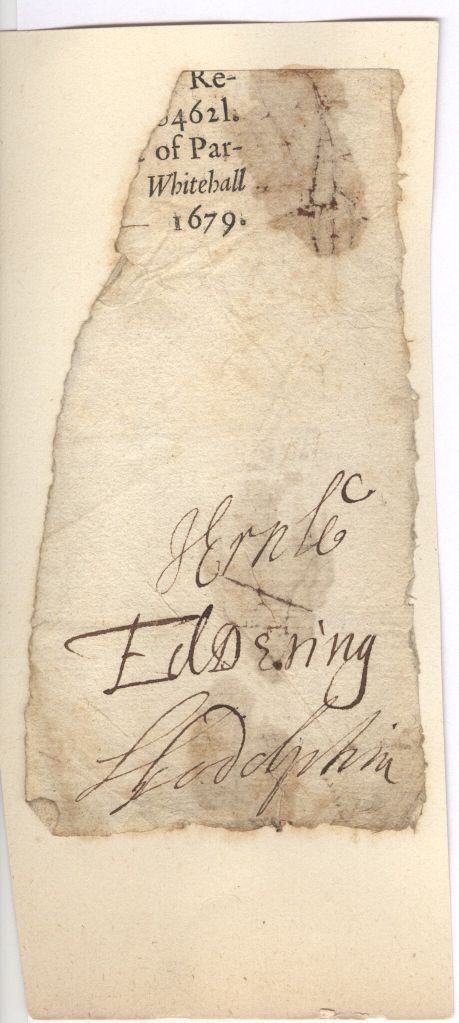 Re-
8462l.
of Par-
Whitehall
1679.
JErnle
Ed Dering
SGodolphin